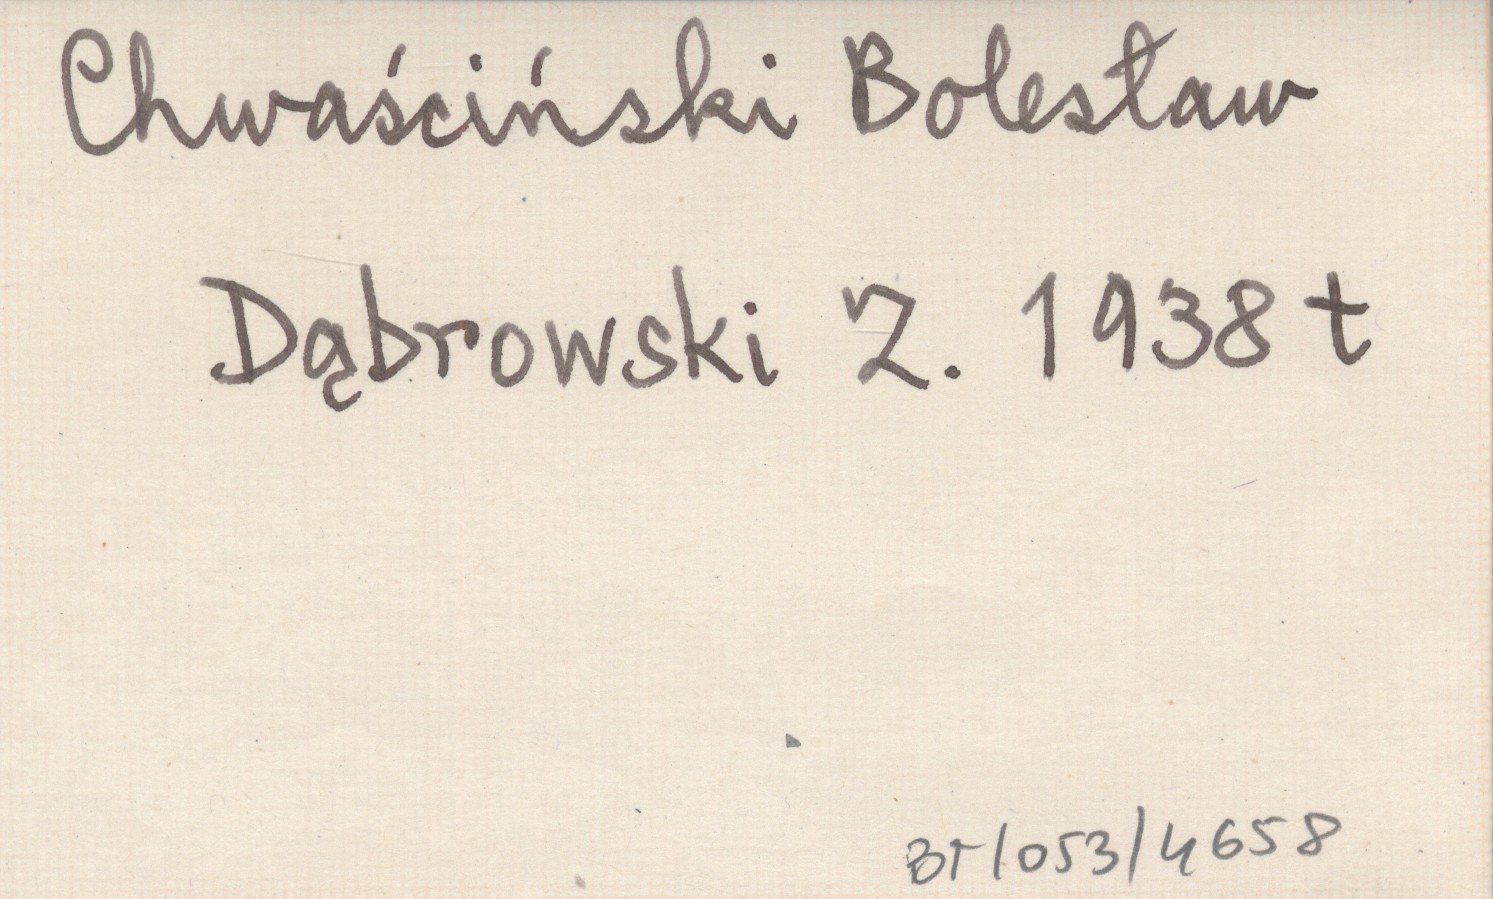 Chwaściński Bolesław
Dąbrowski Z. 1938 t
BT/053/4658